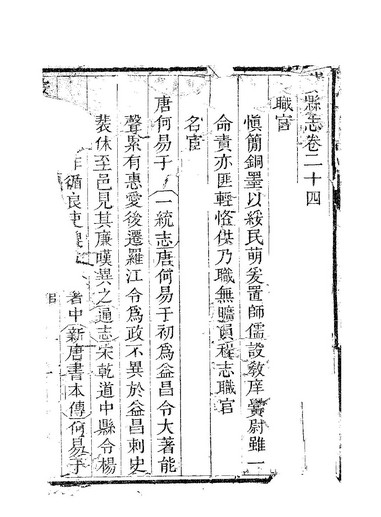 縣志卷二十四
職官
慎簡銅墨以綏民萌爰置師儒設教庠黌尉雖一
命責亦匪輕恪供乃職無曠員稱志職官
名宦
唐何易于一統志唐何易于初為益昌令大著能
聲累有惠愛後遷羅江令為政不異於益昌刺史
裴休至邑見其廉嘆異之通志宋乾道中縣令楊
作循良吏
者中新唐書本傳何易于